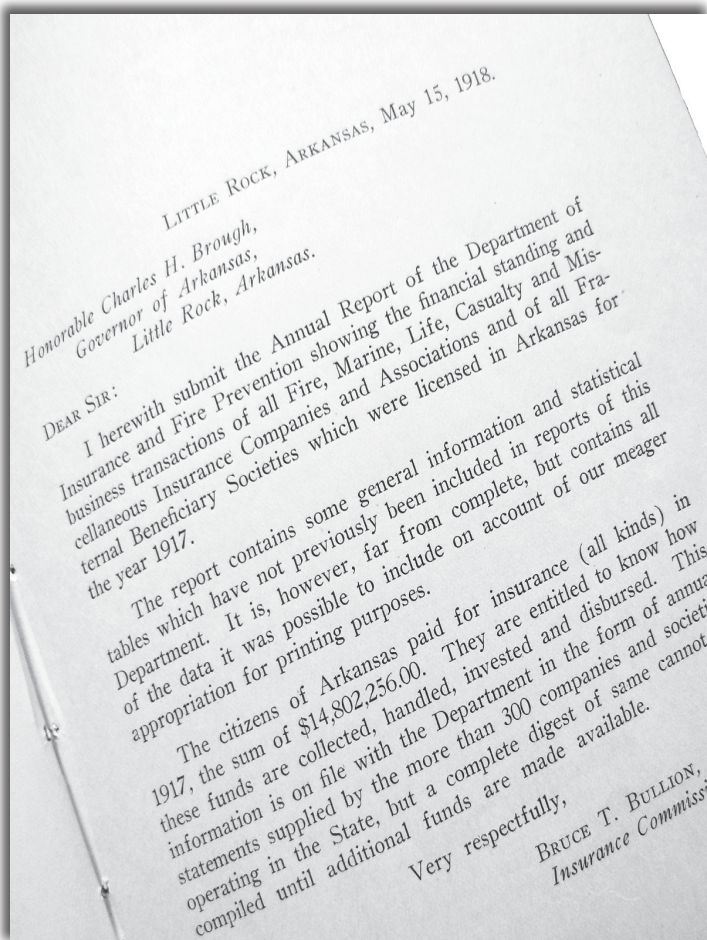 LITTLE ROCK, ARKANSAS, May 15, 1918.
Honorable Charles H. Brough,
Governor of Arkansas,
Little Rock, Arkansas.
DEAR SIR:
I herewith submit the Annual Report of the Department of
Insurance and Fire Prevention showing the financial standing and
business transactions of all Fire, Marine, Life, Casualty and Mis-
cellaneous Insurance Companies and Associations and of all Fra-
ternal Beneficiary Societies which were licensed in Arkansas for
the year 1917.
The report contains some general information and statistical
tables which have not previously been included in reports of this
Department. It is, however, far from complete, but contains all
of the data it was possible to include on account of our meager
appropriation for printing purposes.
The citizens of Arkansas paid for insurance (all kinds) in
1917, the sum of $14,802,256.00. They are entitled to know how
these funds are collected, handled, invested and disbursed. This
information is on file with the Department in the form of annua
statements supplied by the more than 300 companies and societi
operating in the State, but a complete digest of same cannot
compiled until additional funds are made available.
Very respectfully,
BRUCE T. BULLION,
Insurance Commissi